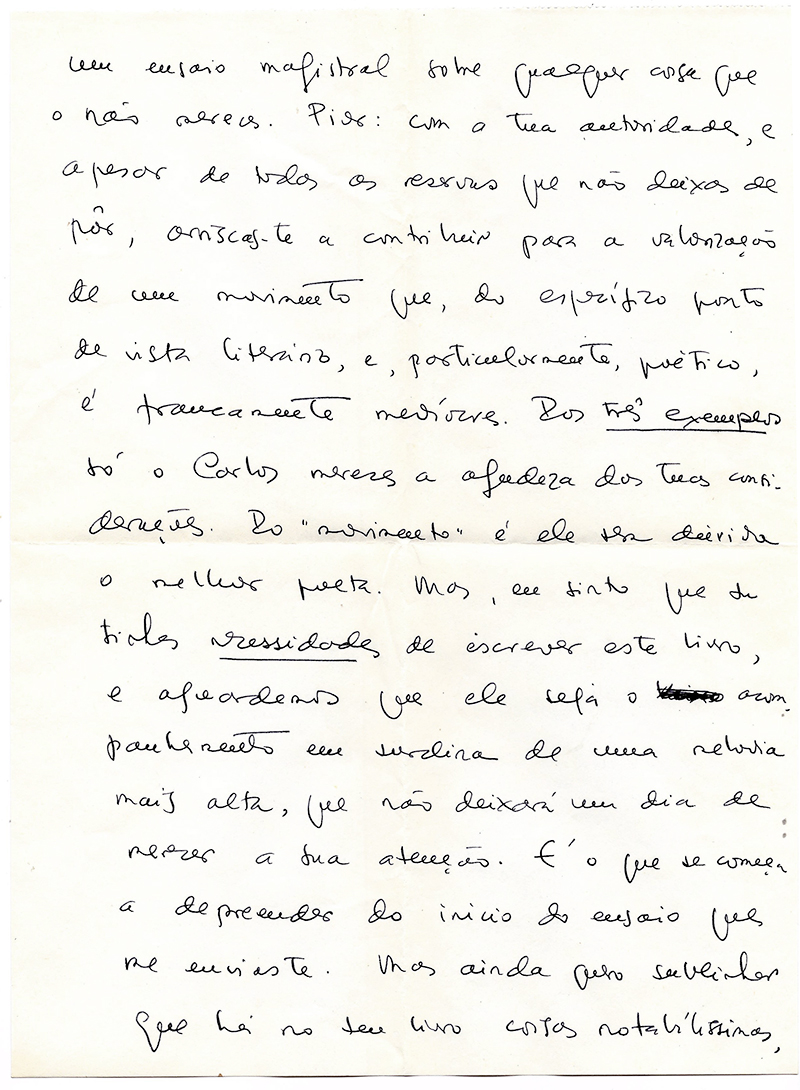 um ensaio magistral sobre qualquer coisa que
o não merece. Pior: com a tua autoridade, e
apesar de todas as reservas que não deixas de
pôr, arriscas-te a contribuir para a valorização
de um movimento que, do específico ponto
de vista literário, e, particularmente, poético,
é francamente medíocre. Dos três exemplos
só o Carlos merece a agudeza das tuas consi-
derações. Do "movimento" é ele sem dúvida
o melhor poeta. Mas, eu sinto que tu
tinhas necessidade de escrever este livro,
e aguardemos que ele seja o acom-
panhamento em surdina de uma melodia
mais alta, que não deixará um dia de
merecer a tua atenção. E' o que se começa
a depreender do início do ensaio que
me enviaste. Mas ainda quero sublinhar
que há no teu livro coisas notabilíssimas,